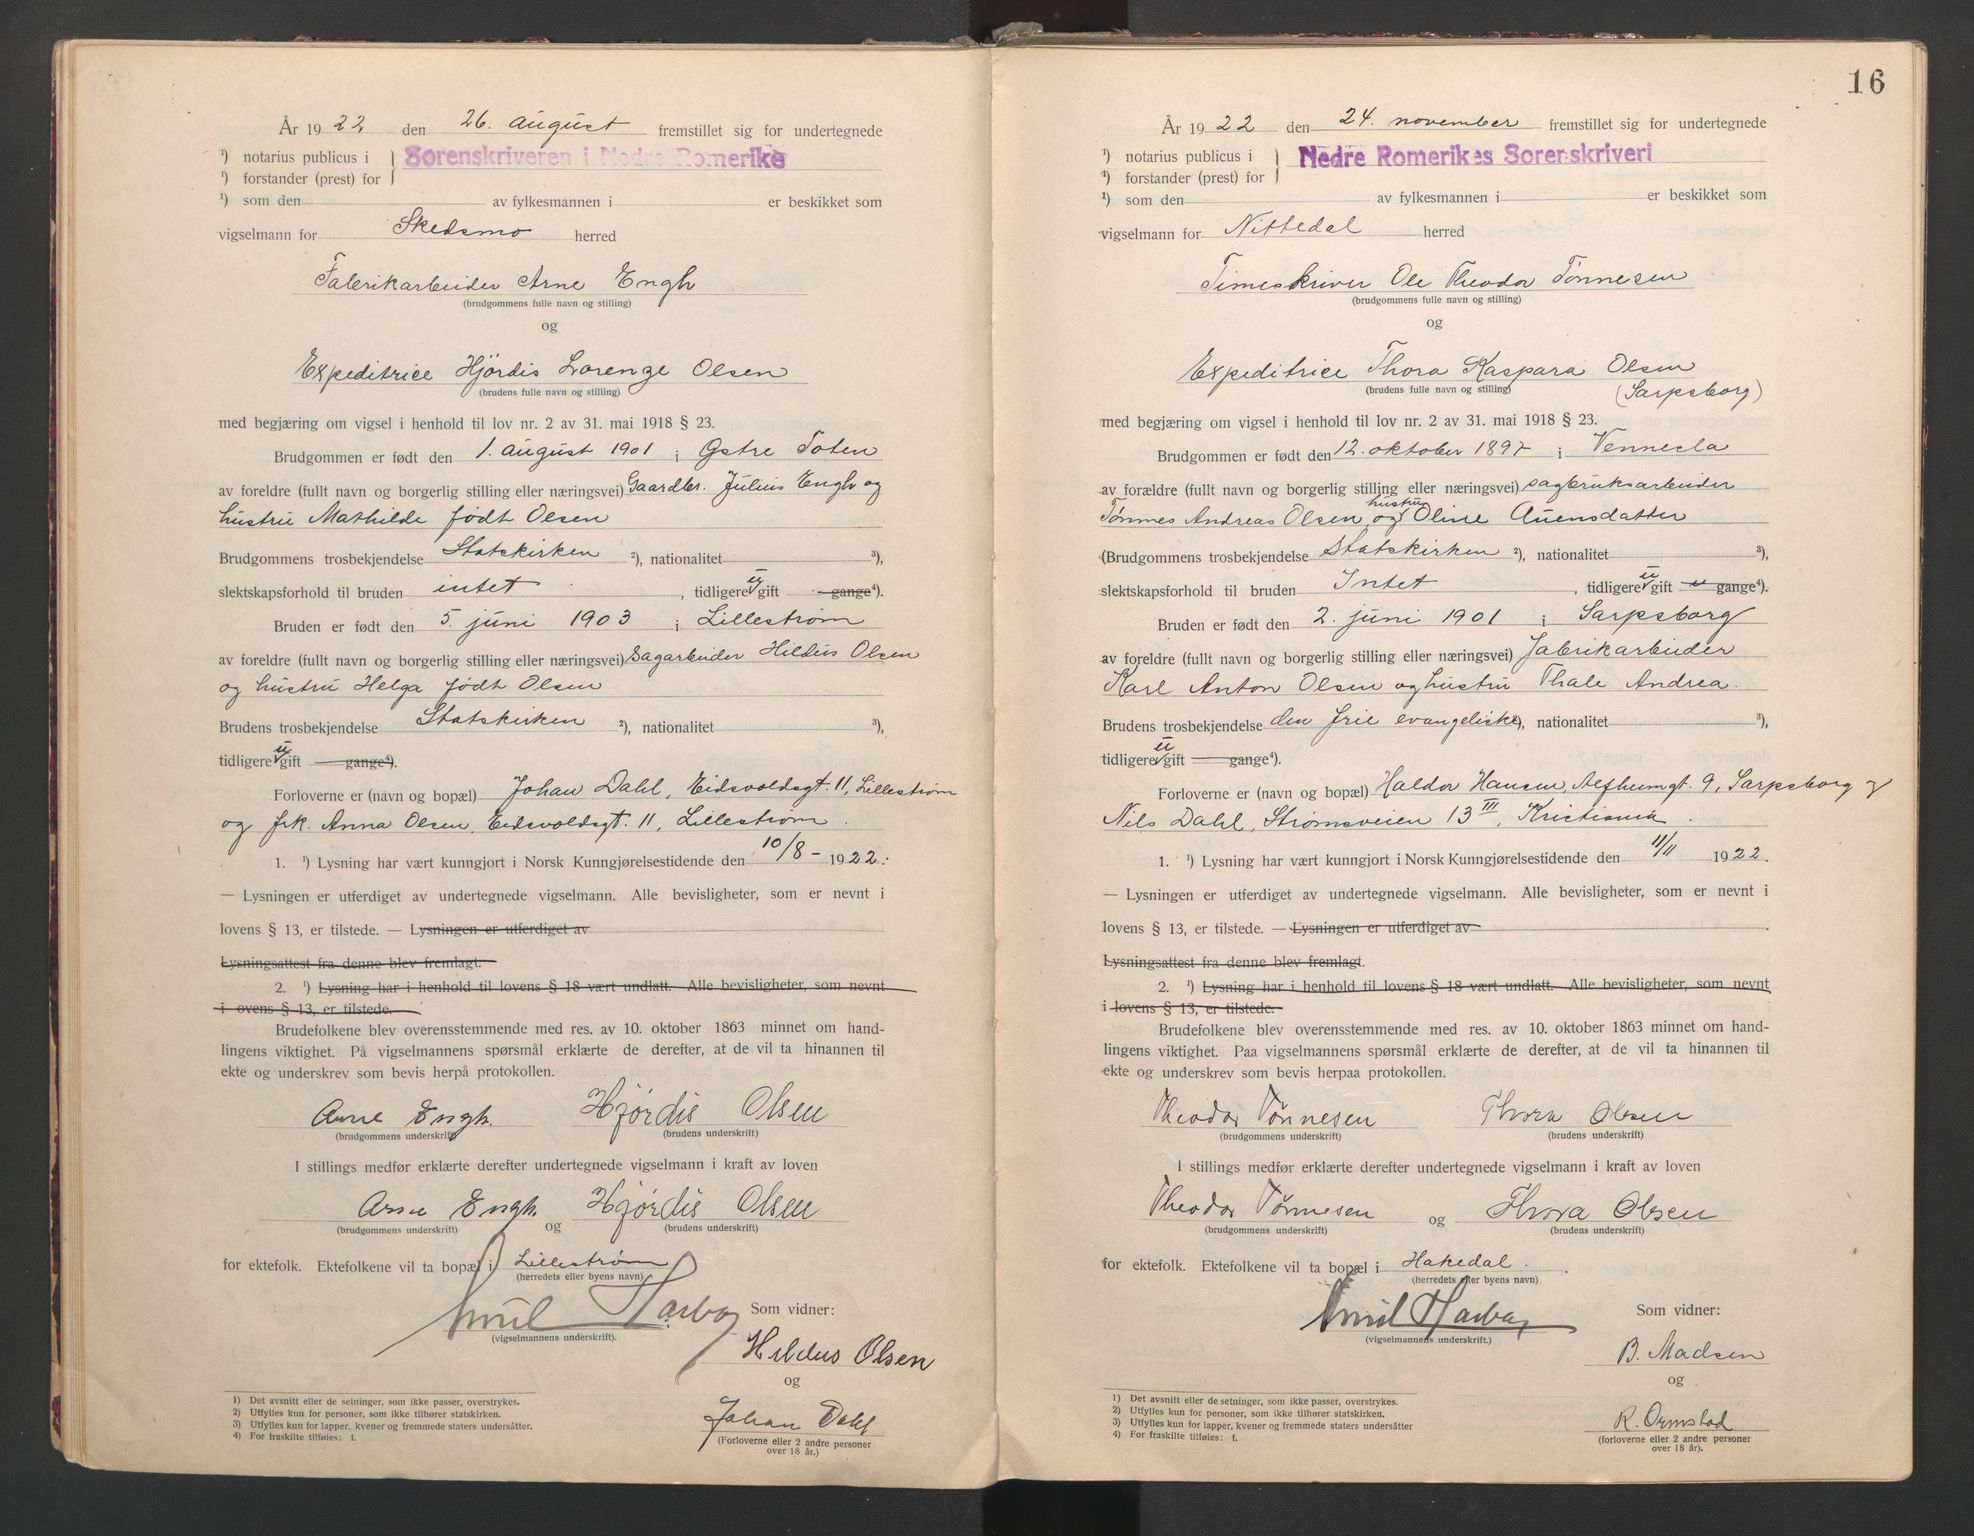 År 1922 den 26. august fremstillet sig for undertegnede
¹) notarius publicus i } Sorenskriveren i Nedre Romerike
¹) forstander (prest) for
¹) som den av fylkesmannen i er beskikket som
vigselmann for Skedsmo herred
Fabrikarbeider Arne Engh
(brudgommens fulle navn og stilling)
og
Expeditrice Hjørdis Lorenze Olsen
(brudens fulle navn og stilling)
med begjæring om vigsel i henhold til lov nr. 2 av 31. mai 1918 § 23.
Brudgommen er født den 1. august 1901 i Østre Toten
av foreldre (fullt navn og borgerlig stilling eller næringsvei) Gaardbr. Julius Engh og
hustru Mathilde født Olsen
Brudgommens trosbekjendelse Statskirken ²), nationalitet ³),
slektskapsforhold til bruden intet, tidligere u gift gange⁴).
Bruden er født den 5. juni 1903 i Lillestrøm
av foreldre (fullt navn og borgerlig stilling eller næringsvei) Sagarbeider Hildus Olsen
og hustru Helga født Olsen
Brudens trosbekjendelse Statskirken ²), nationalitet ³),
tidligere u gift gange⁴).
Forloverne er (navn og bopæl) Johan Dahl, Eidsvoldsgt. 11, Lillestrøm
og frk. Anna Olsen, Eidsvoldsgt. 11, Lillestrøm.
1. ¹) Lysning har vært kunngjort i Norsk Kunngjørelsestidende den 10/8 - 1922.
— Lysningen er utferdiget av undertegnede vigselmann. Alle bevisligheter, som er nevnt i
lovens § 13, er tilstede. — Lysningen er utferdiget av
Lysningsattest fra denne blev fremlagt.
2. ¹) Lysning har i henhold til lovens § 18 vært undlatt. Alle bevisligheter, som nevnt
i ovens § 13, er tilstede.
Brudefolkene blev overensstemmende med res. av 10. oktober 1863 minnet om hand-
lingens viktighet. På vigselmannens spørsmål erklærte de derefter, at de vil ta hinannen til
ekte og underskrev som bevis herpå protokollen.
Arne Engh. Hjørdis Olsen
(brudgommens underskrift) (brudens underskrift)
I stillings medfør erklærte derefter undertegnede vigselmann i kraft av loven
Arne Engh. og Hjørdis Olsen
(brudgommens underskrift) (brudens underskrift)
for ektefolk. Ektefolkene vil ta bopæl i Lillestrøm
(herredets eller byens navn)
Emil Harboe Som vidner:
(vigselmannens underskrift).
Hildus Olsen
og
Johan Dahl
(Forloverne eller 2 andre personer
over 18 år.)
1) Det avsnitt eller de setninger, som ikke passer, overstrykes.
2) Utfylles kun for personer, som ikke tilhører statskirken.
3) Utfylles kun for lapper, kvener og fremmede staters undersåtter.
4) For fraskilte tilføies: f.
16
År 1922 den 24. november fremstillet sig for undertegnede
¹) notarius publicus i } Nedre Romerikes Sorenskriveri
¹) forstander (prest) for
¹) som den av fylkesmannen i er beskikket som
vigselmann for Nittedal herred
Timeskriver Ole Theodor Tønnesen
(brudgommens fulle navn og stilling)
og
Expeditrice Thora Kaspara Olsen
(brudens fulle navn og stilling) (Sarpsborg)
med begjæring om vigsel i henhold til lov nr. 2 av 31. mai 1918 § 23.
Brudgommen er født den 12. oktober 1897 i Vennesla
av forældre (fullt navn og borgerlig stilling eller næringsvei) sagbruksarbeider
Tønnes Andreas Olsen og hustru Oline Auensdatter
(Brudgommens trosbekjendelse Statskirken ²), nationalitet ³),
slektskapsforhold til bruden Intet, tidligere u gift u gange⁴).
Bruden er født den 2. juni 1901 i Sarpsborg
av foreldre (fullt navn og borgerlig stilling eller næringsvei) fabrikarbeider
Karl Anton Olsen og hustru Thale Andrea.
Brudens trosbekjendelse den frie evangeliske), nationalitet ³),
tidligere u gift gange⁴).
Forloverne er (navn og bopæl) Haldor Hansen, Alfheimgt. 9, Sarpsborg og
Nils Dahl, Strømsveien 13 III, Kristiania.
1. ¹) Lysning har vært kunngjort i Norsk Kunngjørelsestidende den 11/11 1922.
— Lysningen er utferdiget av undertegnede vigselmann. Alle bevisligheter, som er nevnt i
lovens § 13, er tilstede. — Lysningen er utferdiget av
Lysningsattest fra denne blev fremlagt.
2. ¹) Lysning har i henhold til lovens § 18 vært undlatt. Alle bevisligheter, som nevnt
i lovens § 13, er tilstede.
Brudefolkene blev overensstemmende med res. av 10. oktober 1863 minnet om hand-
lingens viktighet. Paa vigselmannens spørsmål erklærte de derefter, at de vil ta hinannen til
ekte og underskrev som bevis herpaa protokollen.
Theodor Tønnesen Thora Olsen
(brudgommens underskrift) (brudens underskrift)
I stillings medfør erklærte derefter undertegnede vigselmann i kraft av loven
Theodor Tønnesen og Thora Olsen
(brudgommens underskrift) (brudens underskrift)
for ektefolk. Ektefolkene vil ta bopæl i Hakedal.
(herredets eller byens navn)
Emil Harboe Som vidner:
(vigselmannens underskrift.)
B. Madsen
og
R. Ormstad
(forloverne eller 2 andre personer
over 18 år).
1) Det avsnitt eller de setninger, som ikke passer, overstrykes.
2) Utfylles kun for personer, som ikke tilhører statskirken.
3) Utfylles kun for lapper, kvener og fremmede staters undersåtter
4) For fraskilte tilføies: f.